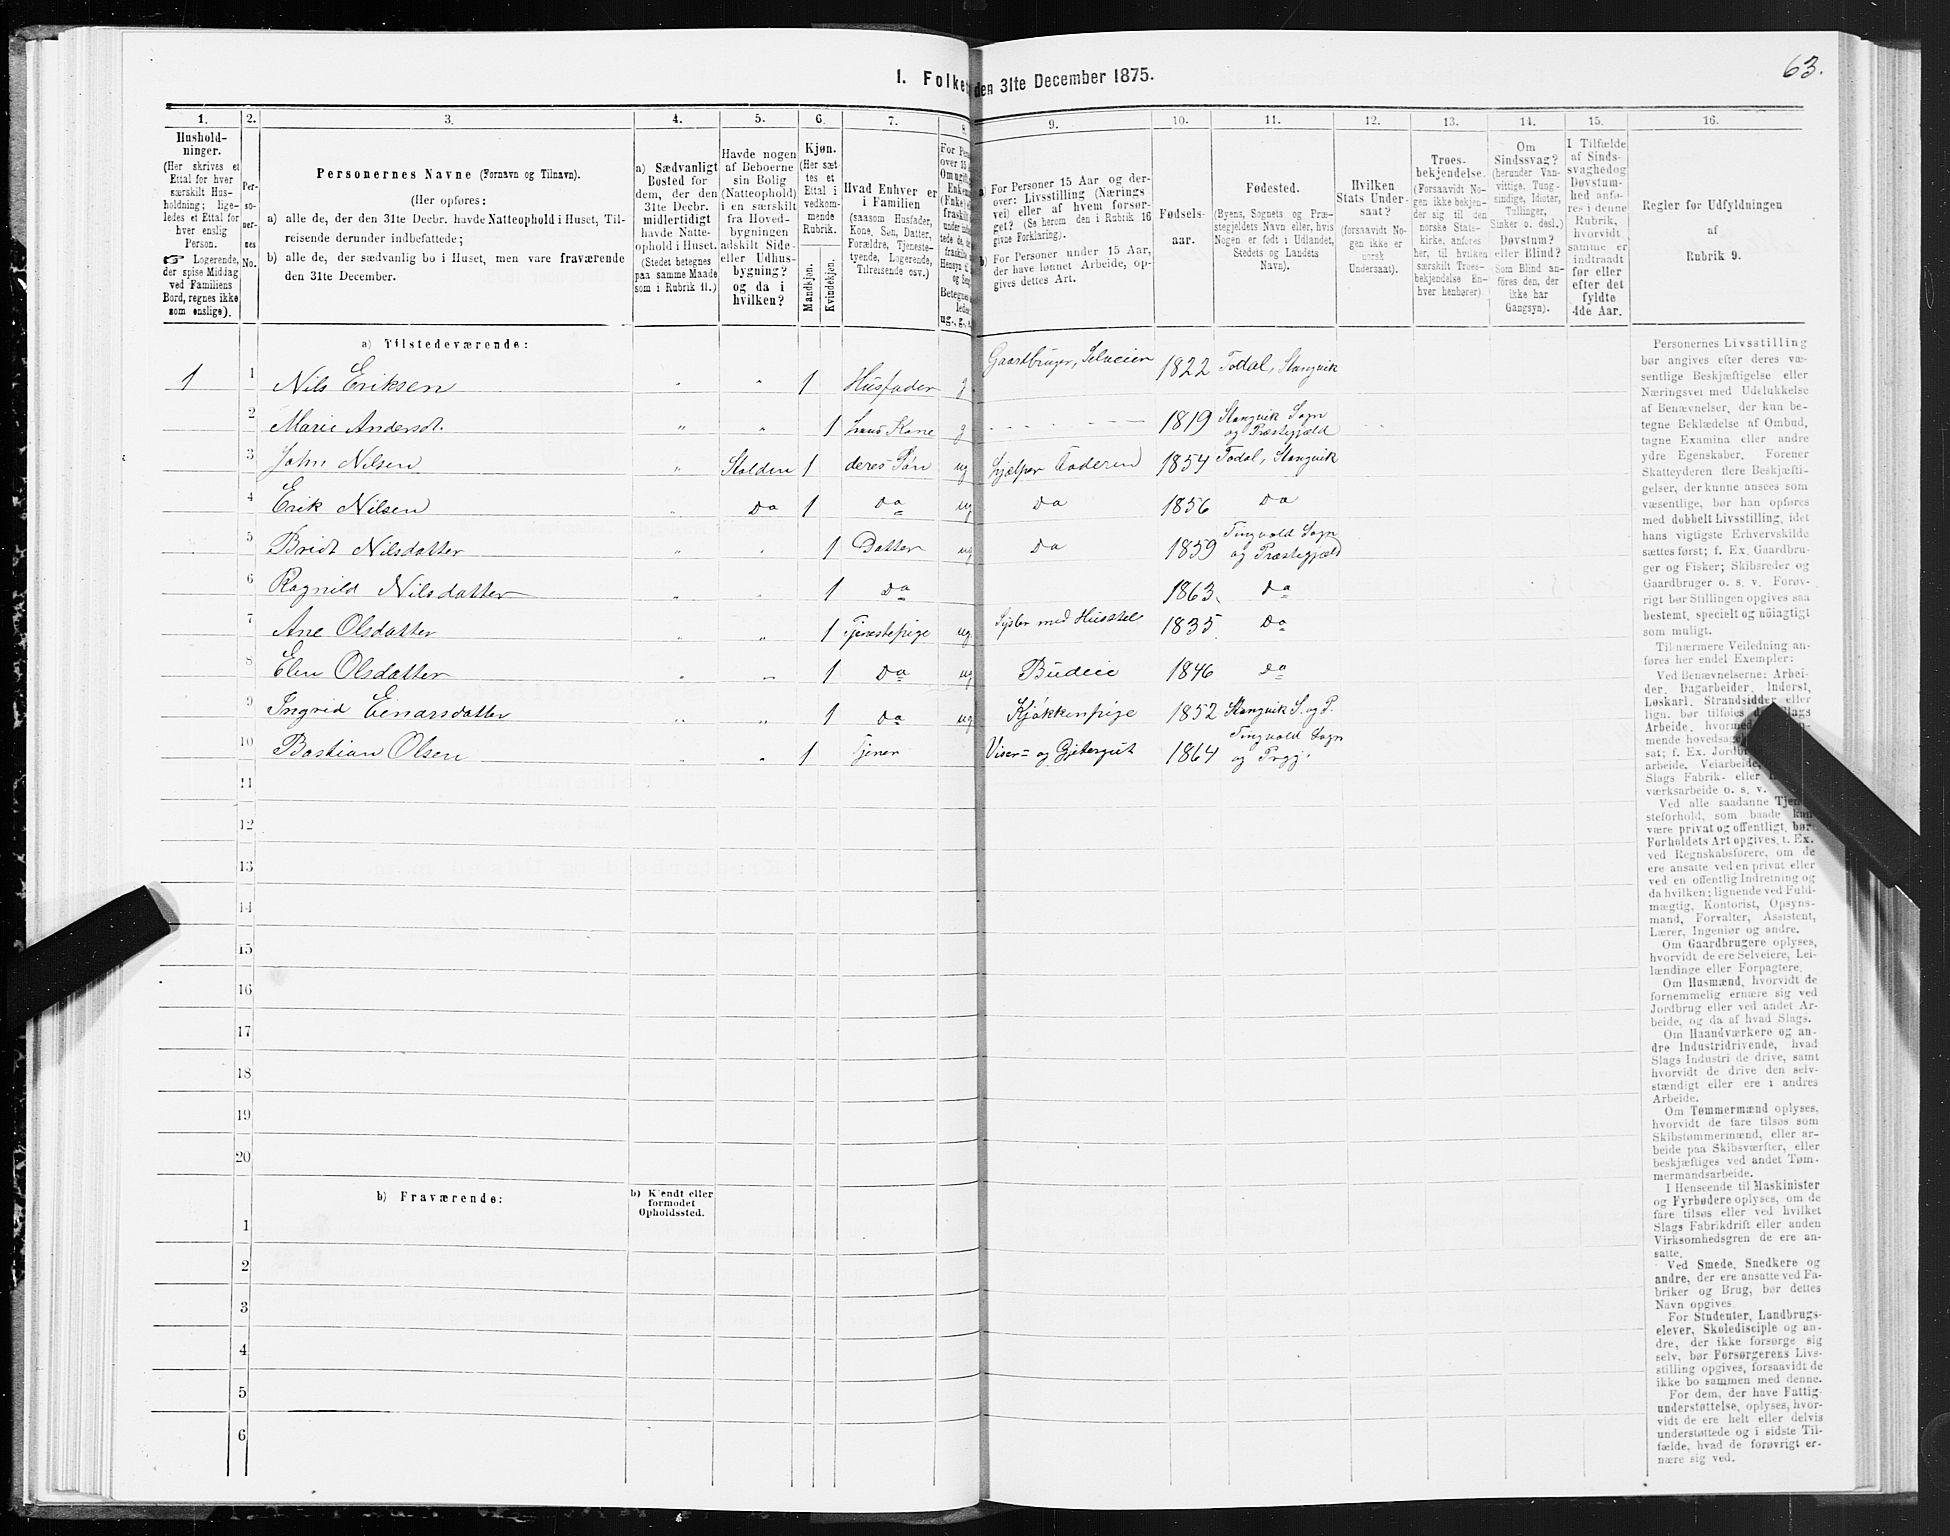 63.
I. Folket den 31te December 1875.
1. 2. 3. 4. 5. 6. 7. 8. 9. 10. 11. 12. 13. 14. 15. 16.
Hushold-
ninger.
(Her skrives et
Ettal for hver
særskilt Hus-
holdning; lige-
ledes et Ettal for
hver enslig
Person.
☞ Logerende,
der spise Middag
ved Familiens
Bord, regnes ikke
som enslige).
Per-
so-
ner-
nes
No.
Personernes Navne (Fornavn og Tilnavn).
(Her opføres:
a) alle de, der den 31te Decbr. havde Natteophold i Huset, Til-
reisende derunder indbefattede;
b) alle de, der sædvanlig bo i Huset, men vare fraværende
den 31te December.
a) Sædvanligt
Bosted for
dem, der den
31te Decbr.
midlertidigt
havde Natte-
ophold i Huset.
(Stedet betegnes
paa samme Maade
som i Rubrik 11.)
Havde nogen
af Beboerne
sin Bolig
(Natteophold)
i en særskilt
fra Hoved-
bygningen
adskilt Side-
eller Udhus-
bygning?
og da i
hvilken?
Kjøn.
(Her sæt-
tes et
Ettal i
vedkom-
mende
Rubrik.
Mandkjøn.
Kvindekjøn.
Hvad Enhver er
i Familien
(saasom Husfader,
Kone, Søn, Datter,
Forældre, Tjeneste-
tyende, Logerende,
Tilreisende osv.)
For Pers
over 15
Om ugift,
Enke
(Enke)
fraskilt
ug., g.,
a) For Personer 15 Aar og der-
over: Livsstilling (Nærings-
vei) eller af hvem forsør-
get? (Se herom den i Rubrik 16
givne Forklaring).
b) For Personer under 15 Aar,
der have lønnet Arbeide, op-
gives dettes Art.
Fødsels-
aar.
Fødested.
(Byens, Sognets og Præ-
stegjeldets Navn eller, hvis
Nogen er født i Udlandet,
Stedets og Landets
Navn).
Hvilken
Stats Under-
saat?
(forsaavidt No-
gen ikke er
norsk
Undersaat).
Troes-
bekjendelse.
(Forsaavidt No-
gen ikke bekjen-
der sig til den
norske Stats-
kirke, anføres
her, til hvilken
særskilt Troes-
bekjendelse En-
hver henhører).
Om
Sindssvag?
(herunder Van-
vittige, Tung-
sindige, Idioter,
Tullinger,
Sinker o. desl.).
Døvstum?
eller Blind?
(Som Blind an-
føres den, der
ikke har
Gangsyn).
I Tilfælde
af Sinds-
svaghedog
Døvstum-
hed anfø-
res i denne
Rubrik,
hvorvidt
samme er
indtraadt
før eller
efter det
fyldte
4de Aar.
Regler for Udfyldningen
af
Rubrik 9.
a) Tilstedeværende:
1 1 Nils Eriksen " " 1 Husfader g Gaardbruger, Selveier 1822 Todal, Stangvik
2 Marie Andersdt. " " 1 hans Kone g 1819 Stangvik Sogn
og Præstegjæld
3 John Nilsen " Stolden 1 deres Søn ug hjælper Faderen 1854 Todal, Stangvik
4 Erik Nilsen " Do 1 Do ug Do 1856 Do
5 Bridt Nilsdatter " " 1 Datter ug Do 1859 Tingvold Sogn
og Præstegjæld
6 Ragnild Nilsdatter " " 1 Do 1863 Do
7 Ane Olsdatter " " 1 Tjenestepige ug Sysler med Husstel 1835 Do
8 Elen Olsdatter " " 1 Do ug Budeie 1846 Do
9 Ingrid Einarsdatter " " 1 Do ug Kjøkkenpige 1852 Stangvik S. og P.
10 Bastian Olsen " " 1 Tjener Viser= og Gjetergut 1864 Tingvold Sogn
og Prgj.
11
12
13
14
15
16
17
18
19
20
b) Fraværende:
b) Kjendt eller
formodet
Opholdssted.
1
2
3
4
5
6
Personernes Livsstilling
bør angives efter deres væ-
sentlige Beskjæftigelse eller
Næringsvei med Udelukkelse
af Benævnelser, der kun be-
tegne Beklædelse af Ombud,
tagne Examina eller andre
ydre Egenskaber. Forener
Skatteyderen flere Beskjæfti-
gelser, der kunne ansees som
væsentlige, bør han opføres
med dobbelt Livsstilling, idet
hans vigtigste Erhvervskilde
sættes først; f. Ex. Gaardbru-
ger og Fisker; Skibsreder og
Gaardbruger o. s. v. Forøv-
rigt bør Stillingen opgives saa
bestemt, specielt og nöiagtigt
som muligt.
Til nærmere Veiledning an-
føres her endel Exempler:
Ved Benævnelserne: Arbei-
der, Dagarbeider, Inderst,
Løskarl, Strandsidder eller
lign. bør tilføies
Arbeide, hvormed
mende hovedsa
sat; f. Ex. Jordb
arbeide, Veiarbeide,
Slags Fabrik- eller
værksarbeide o. s. v.
Ved alle saadanne Tjen
steforhold, som baade kun
være privat og offentligt, bør
Forholdets Art opgives, t. Ex.
ved Regnskabsførere, om de
ere ansatte ved en privat eller
ved en offentlig Indretning og
da hvilken; lignende ved Fuld-
mægtig, Kontorist, Opsyns-
mand, Forvalter, Assistent,
Lærer, Ingeniør og andre.
Om Gaardbrugere oplyses,
hvorvidt de ere Selveiere, Lei-
lændinge eller Forpagtere.
Om Husmænd, hvorvidt de
fornemmelig ernære sig ved
Jordbrug eller ved andet Ar-
beide, og da af hvad Slags.
Om Haandværkere og an-
dre Industridrivende, hvad
Slags Industri de drive, samt
hvorvidt de drive den selv-
stændigt eller ere i andres
Arbeide.
Om Tømmermænd oplyses,
hvorvidt de fare tilsøs som
Skibstømmermænd, eller ar-
beide paa Skibsværfter, eller
beskjæftiges ved andet Tøm-
mermandsarbeide.
I Henseende til Maskinister
og Fyrbødere oplyses, om de
fare tilsøs eller ved hvilket
Slags Fabrikdrift eller anden
Virksomhedsgren de ere an-
satte.
Ved Smede, Snedkere og
andre, der ere ansatte ved Fa-
briker og Brug, bør dettes
Navn opgives.
For Studenter, Landbrugs-
elever, Skoledisciple og an-
dre, der ikke forsørge sig
selv, bør Forsørgerens Livs-
stilling opgives, forsaavidt de
ikke bo sammen med denne.
For dem, der have Fattig-
understøttelse, oplyses, hvor-
vidt de ere helt eller delvis
understøttede og i sidste Til-
fælde, hvad de forøvrigt er-
nære sig ved.